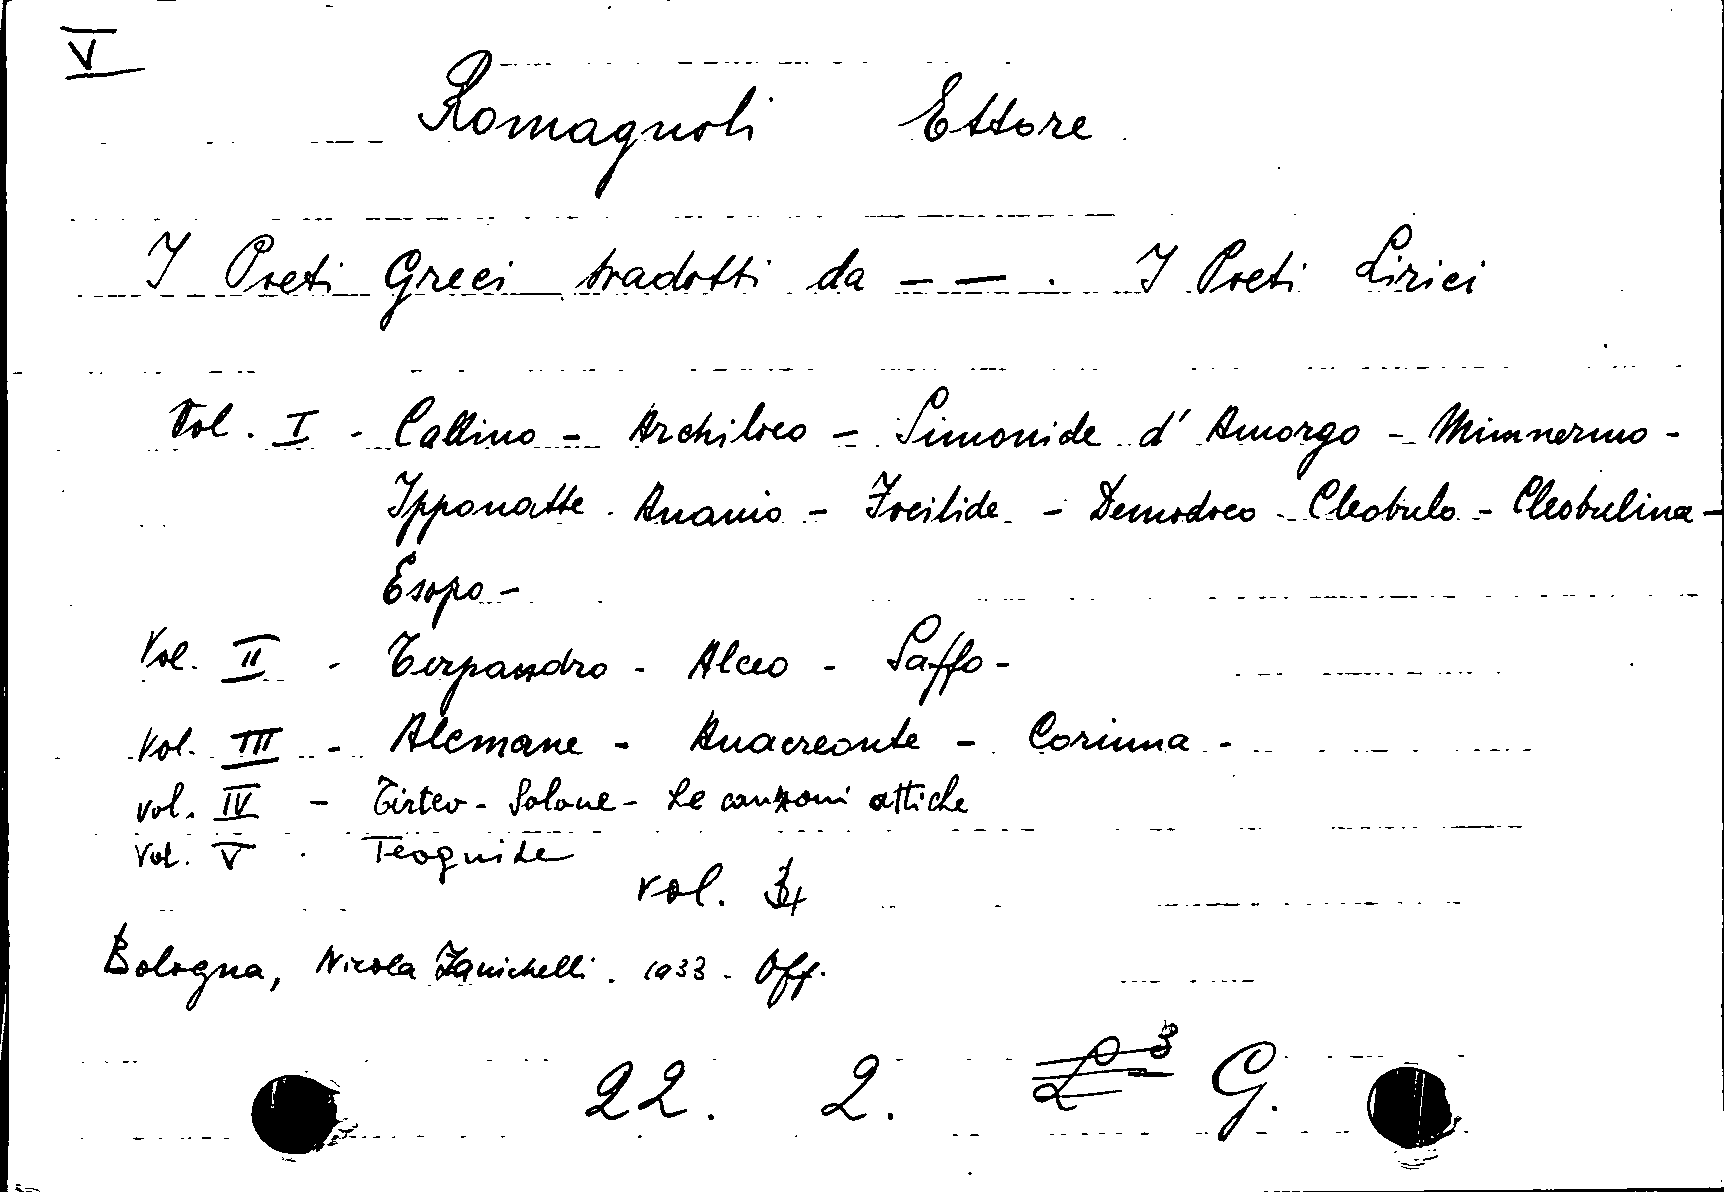 V
Romagnoli Ettore
I Poeti Greci tradotti da - - . I Poeti Lirici
Vol. I - Callino - Archiloco - Simonide d'Amorgo - Mimnermo -
Ipponatte - Ananio - Focilide - Demodoco - Cleobulo - Cleobulina -
Esopo -
Vol. II - Terpandro - Alceo - Saffo -
Vol. III - Alcmane - Anacreonte - Corinna -
vol. IV - Tirteo - Solone - Le canzoni attiche
Vol. V . Teognide
vol.
Bologna, Nicola Zanichelli . 1933 - Off.
22. 2. L3 G.